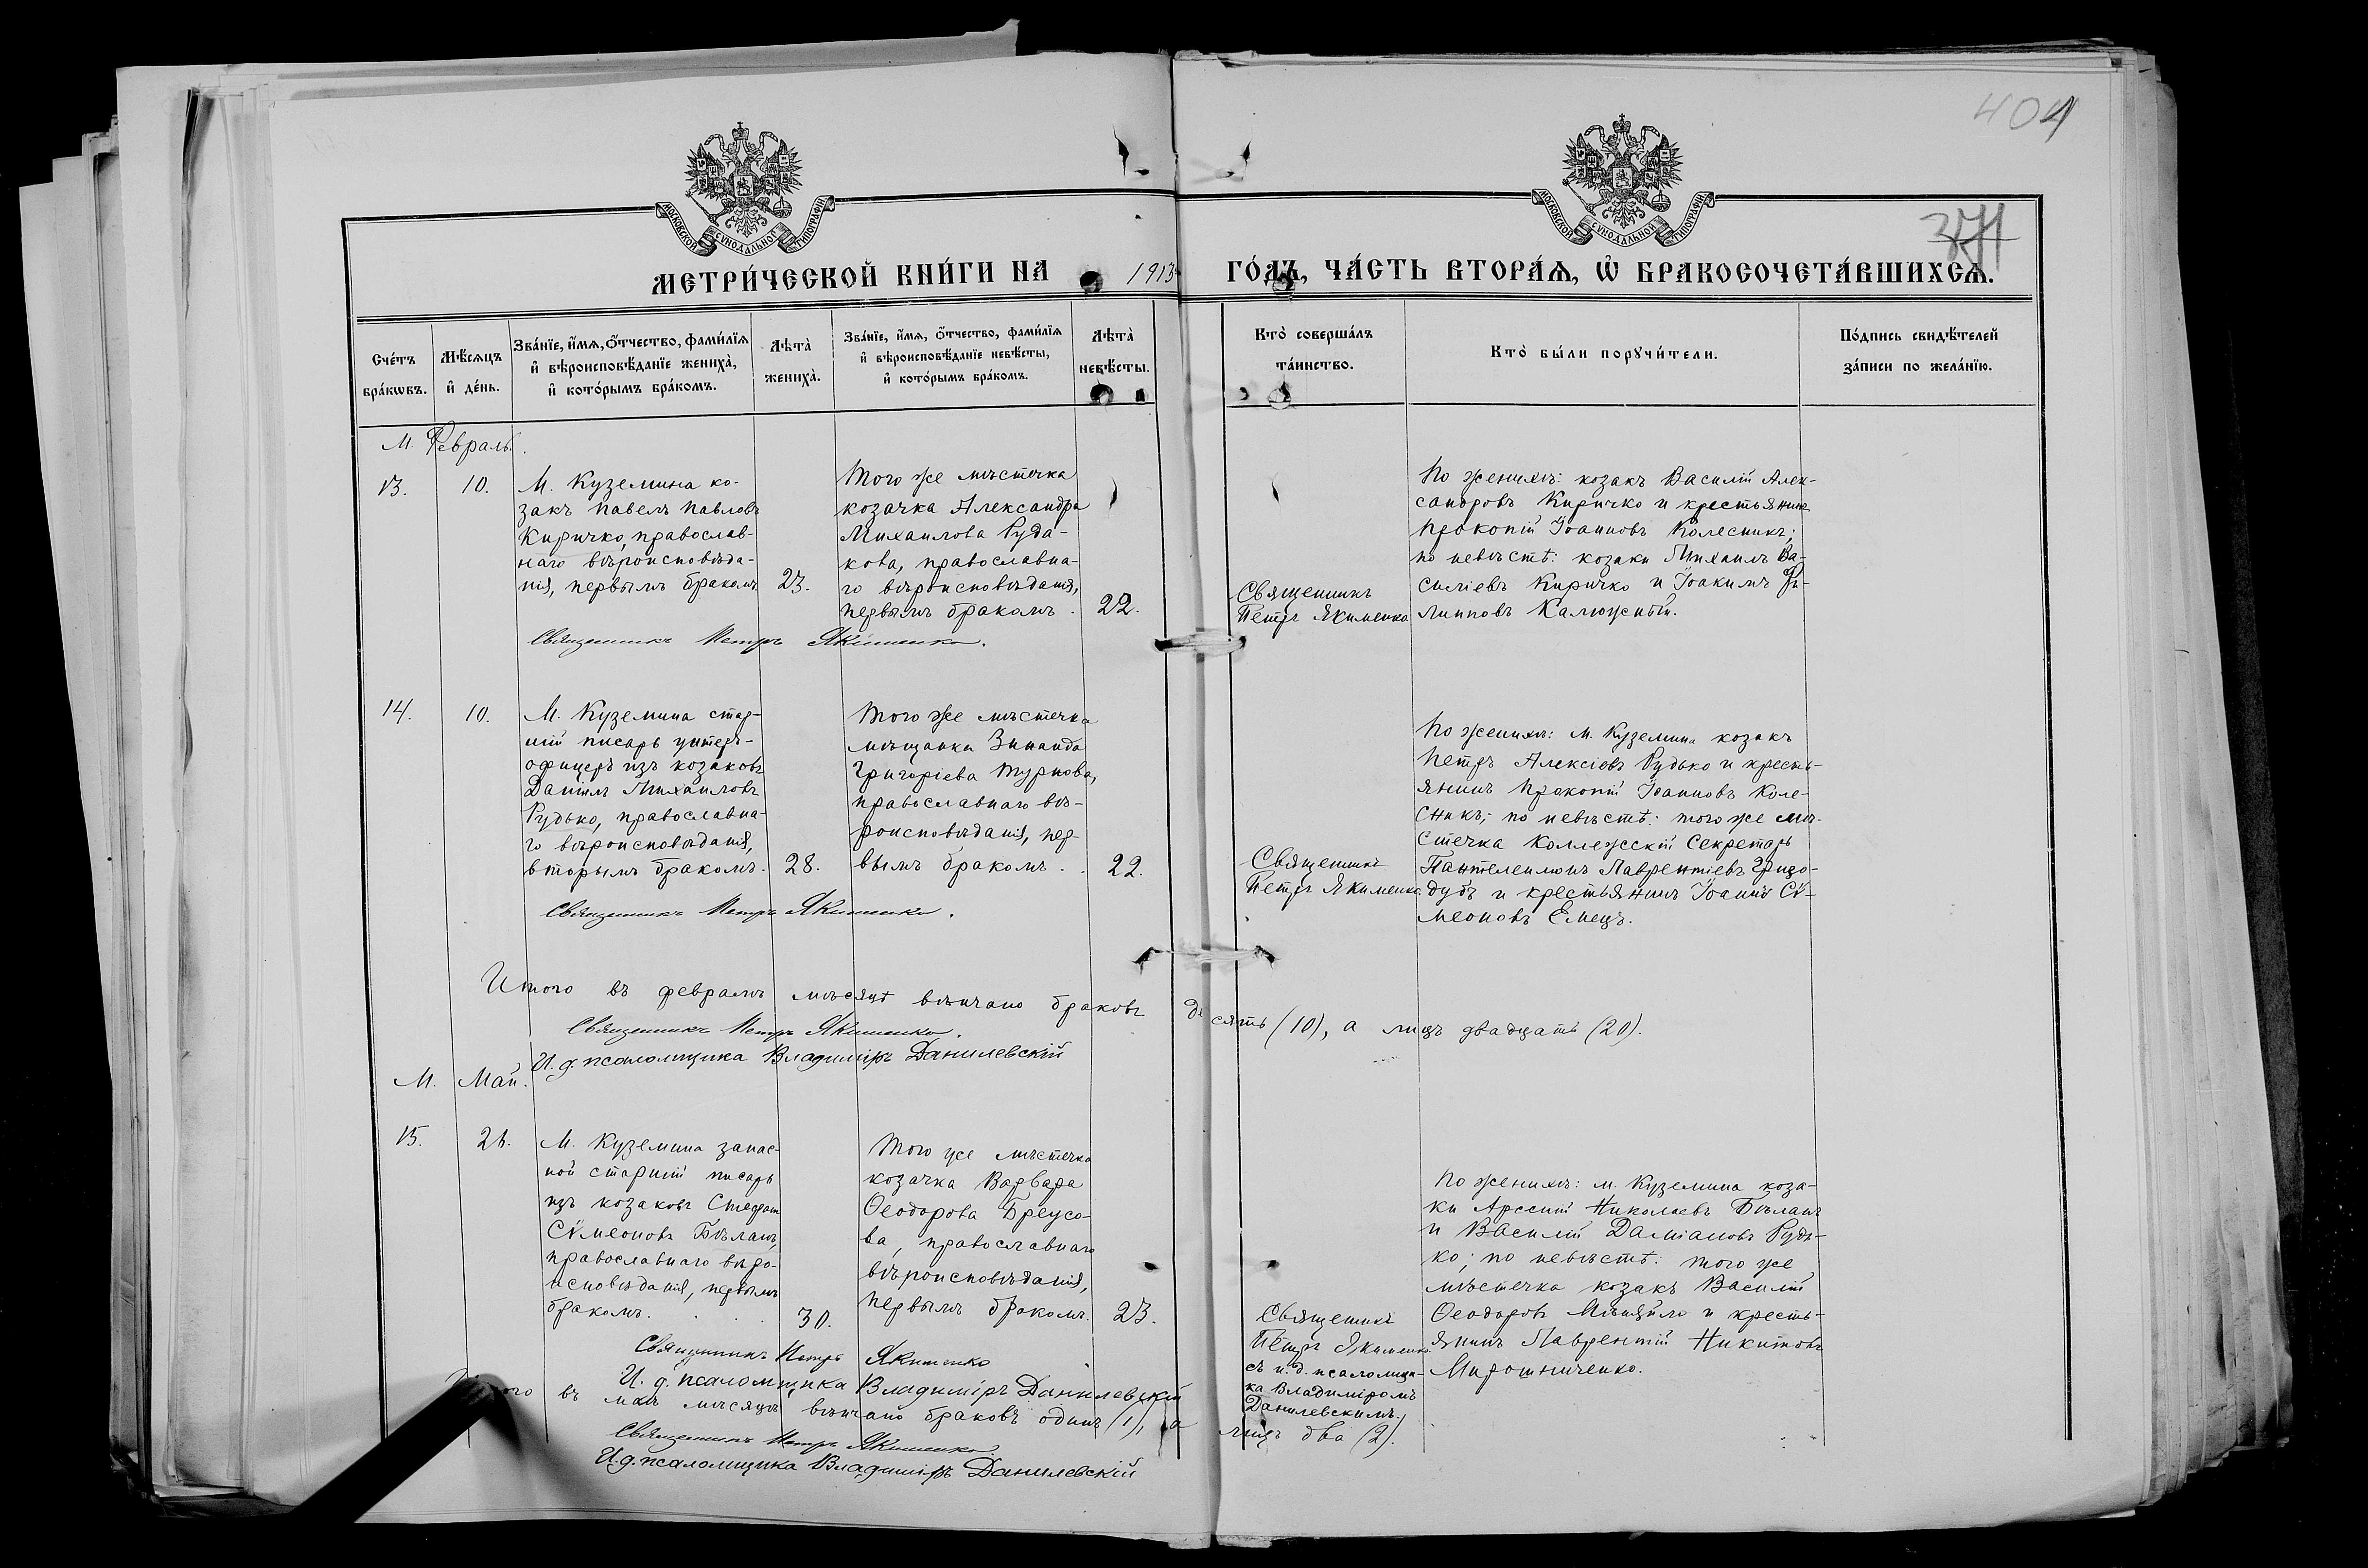 404
371
МОСКОВСКОЙ СУНОДАЛЬНОЙ ТИПОГРАФІИ
МОСКОВСКОЙ СУНОДАЛЬНОЙ ТИПОГРАФІИ
МЕТРИ́ЧЕСКОЙ КНИ́ГИ НА 1913 ГО́ДЪ, ЧА́СТЬ ВТОРА́Ѧ, Ѡ҆ БРАКОСОЧЕТА́ВШИХСѦ.
Сче́тъ бра́кѡвъ.
Мѣ́сѧцъ и҆ де́нь.
Зва́нїе, и҆́мѧ, ѻ҆́тчество, фами́лїѧ
и҆ вѣроисповѣ́данїе жениха̀,
и҆ кото́рымъ бра́комъ.
Лѣта̀ жениха̀.
Зва́нїе, и҆́мѧ, ѻ҆́тчество, фами́лїѧ
и҆ вѣроисповѣ́данїе невѣ́сты,
и҆ кото́рымъ бра́комъ.
Лѣта̀ невѣ́сты.
Кто̀ соверша́лъ
та́инство.
Кто̀ бы́ли порꙋчи́тели.
По́дпись свидѣ́телей
за́писи по жела́нїю.
М. Февраль.
13.
10.
М. Куземина ко-
закъ Павелъ Павловъ
Киричко, православ-
наго вѣроисповѣда-
нія, первымъ бракомъ
23.
Того же мѣстечка
козачка Александра
Михаилова Руда-
кова, православна-
го вѣроисповѣданія,
первымъ бракомъ.
22.
Священникъ
Петръ Якименко
По женихѣ: козакъ Василій Алек-
сандровъ Киричко и крестьянинъ
Прокопій Іоанновъ Колесникъ;
по невѣстѣ: козаки Михаилъ Ва-
силіевъ Киричко и Іоакимъ Фи-
липповъ Калюжный.
Священникъ Петръ Якименко.
14.
10.
М. Куземина стар-
шій писарь унтеръ-
офицеръ изъ козаковъ
Даніилъ Михаиловъ
Рудько, православна-
го вѣроисповѣданія,
вторымъ бракомъ.
28.
Того же мѣстечка
мѣщанка Зинаида
Григоріева Турнова,
православнаго вѣ-
роисповѣданія, пер-
вымъ бракомъ.
22.
Священникъ
Петръ Якименко
По женихѣ: м. Куземина козакъ
Петръ Алексіевъ Рудько и кресть-
янинъ Прокопій Іоанновъ Коле-
сникъ; по невѣстѣ: того же мѣ-
стечка Коллежскій Секретарь
Пантелеимонъ Лаврентіевъ Гризо-
дубъ и крестьянинъ Іоаннъ Сѵ-
меоновъ Емецъ.
Священникъ Петръ Якименко.
Итого въ февралѣ мѣсяцѣ вѣнчано браковъ десять (10), а лицъ двадцать (20).
Священникъ Петръ Якименко.
И. д. псаломщика Владиміръ Данилевскій
М. Май.
15.
26.
М. Куземина запас-
ной старшій писарь
изъ козаковъ Стефанъ
Сѵмеоновъ Бѣланъ,
православнаго вѣро-
исповѣданія, первымъ
бракомъ.
30.
Того же мѣстечка
козачка Варвара
Ѳеодорова Бреусо-
ва, православнаго
вѣроисповѣданія,
первымъ бракомъ.
23.
Священникъ
Петръ Якименко
съ и. д. псаломщи-
ка Владиміромъ
Данилевскимъ.
По женихѣ: м. Куземина коза-
ки Арсеній Николаевъ Бѣланъ
и Василій Даміановъ Рудь-
ко; по невѣстѣ: того же
мѣстечка козакъ Василій
Ѳеодоровъ и кресть-
янинъ Лаврентій Никитовъ
Мирошниченко.
Священникъ Петръ Якименко
И. д. псаломщика Владиміръ Данилевскій
въ маѣ мѣсяцѣ вѣнчано браковъ одинъ (1), а лицъ два (2).
Священникъ Петръ Якименко
И. д. псаломщика Владиміръ Данилевскій